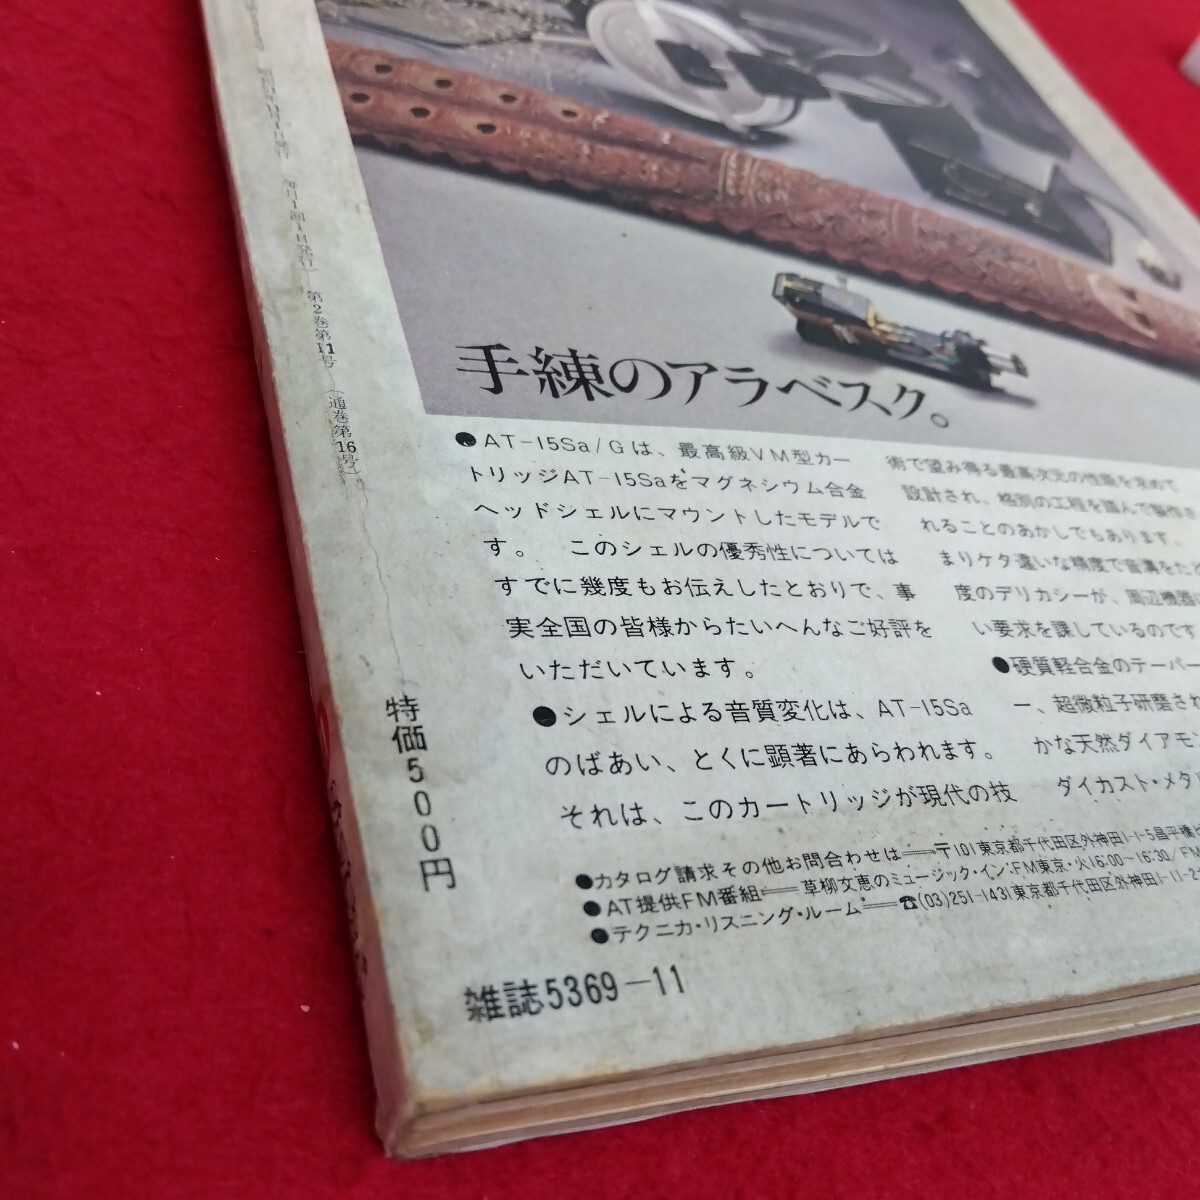 手練のアラベスク。
●AT-15Sa/Gは、最高級VM型カー
トリッジAT-15Saをマグネシウム合金
ヘッドシェルにマウントしたモデルで
す。 このシェルの優秀性については
すでに幾度もお伝えしたとおりで、事
実全国の皆様からたいへんなご好評を
いただいています。
●シェルによる音質変化は、AT-15Sa
のばあい、とくに顕著にあらわれます。
それは、このカートリッジが現代の技
術で望み得る最高次元の性能を求めて
設計され、格別の工程を踏んで製作さ
れることのあかしでもあります。
まりケタ違いな精度で音溝をたど
度のデリカシーが、周辺機器に
い要求を課しているのです
●硬質軽合金のテーパー
一、超微粒子研磨され
かな天然ダイアモン
ダイカスト・メタル
●カタログ請求その他お問合わせは══〒101東京都千代田区外神田1-1-5昌平橋ビ
●AT提供FM番組══草柳文恵のミュージック・イン:FM東京・火16:00~16:30/FM
●テクニカ・リスニング・ルーム══☎(03)251-1431東京都千代田区外神田1-11-2
月1回1日発行) 第2巻第11号 (通巻第16号)
特価500円
雑誌5369-11